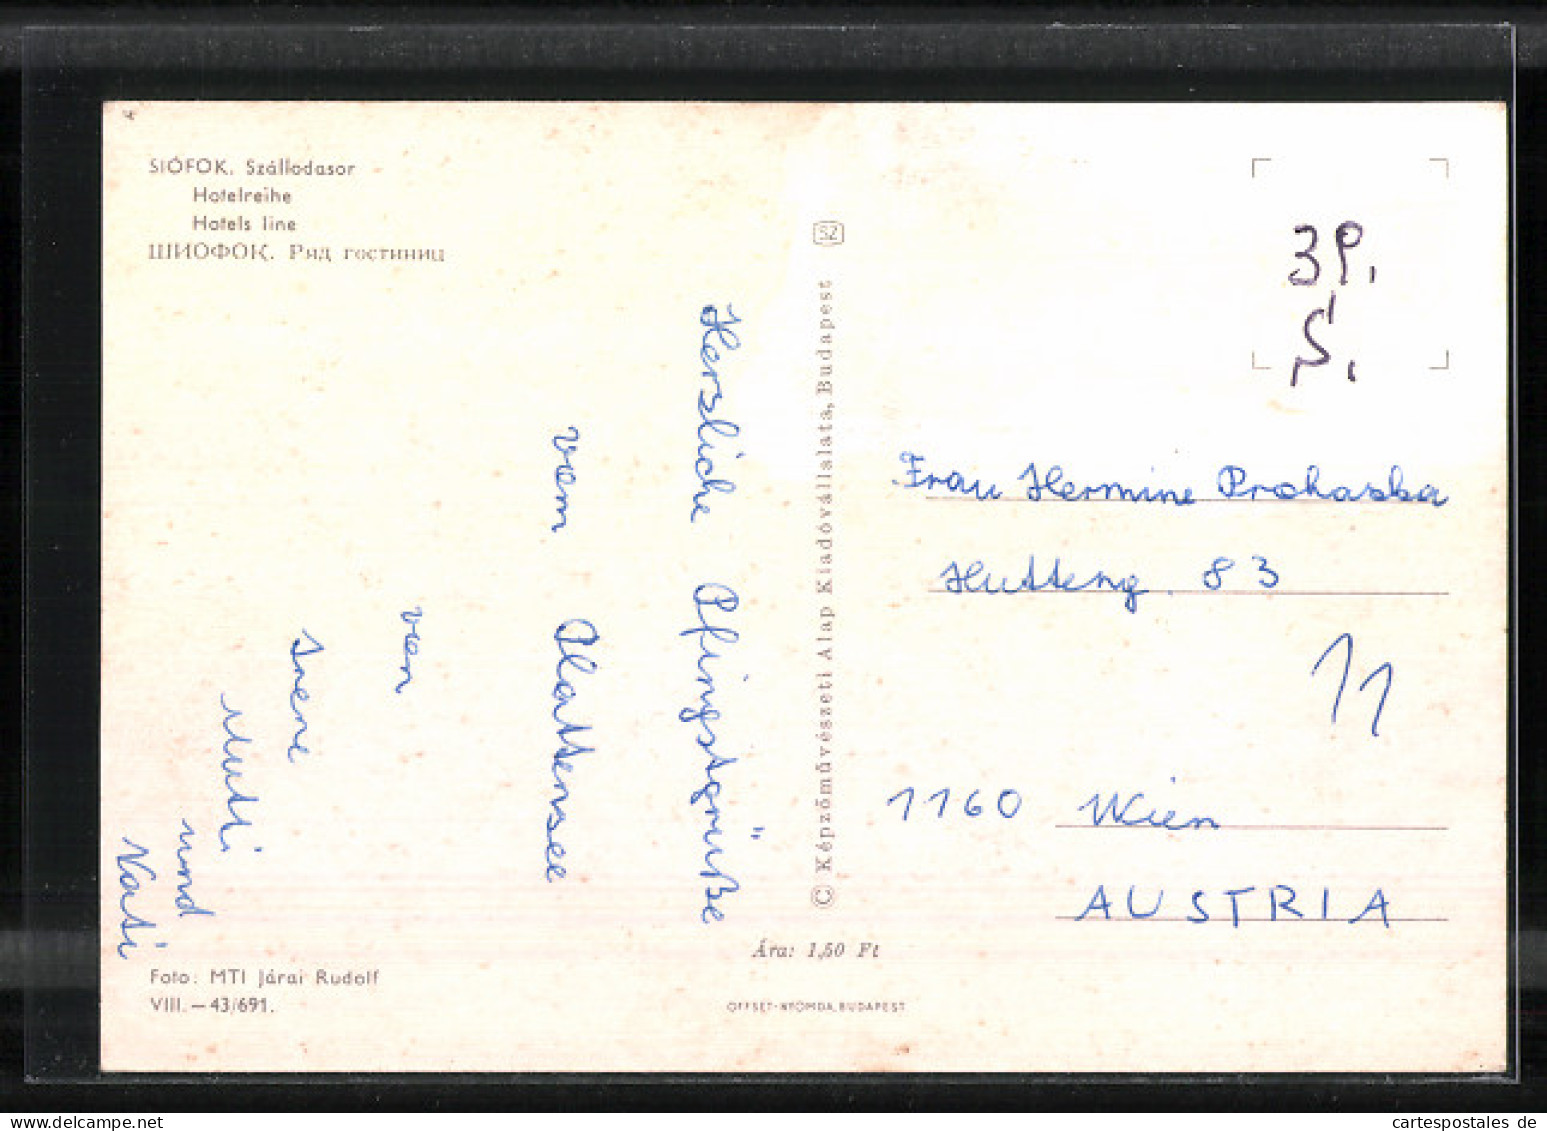 SIÓFOK. Szállodasor
Hotelreihe
Hotels line
ШИОФОК. Ряд гостиниц
Herzliche Pfingstgrüße
vom Plattensee
von
Irene
Mutti
und
Vati
Foto: MTI Járai Rudolf
VIII. — 43/691.
SZ
© Képzőművészeti Alap Kiadóvállalata, Budapest
Ára: 1,50 Ft
OFFSET-NYOMDA, BUDAPEST
3P.
S.
Frau Hermine Prohaska
Hutteng. 83
11
1160 Wien
AUSTRIA
cartespostales de